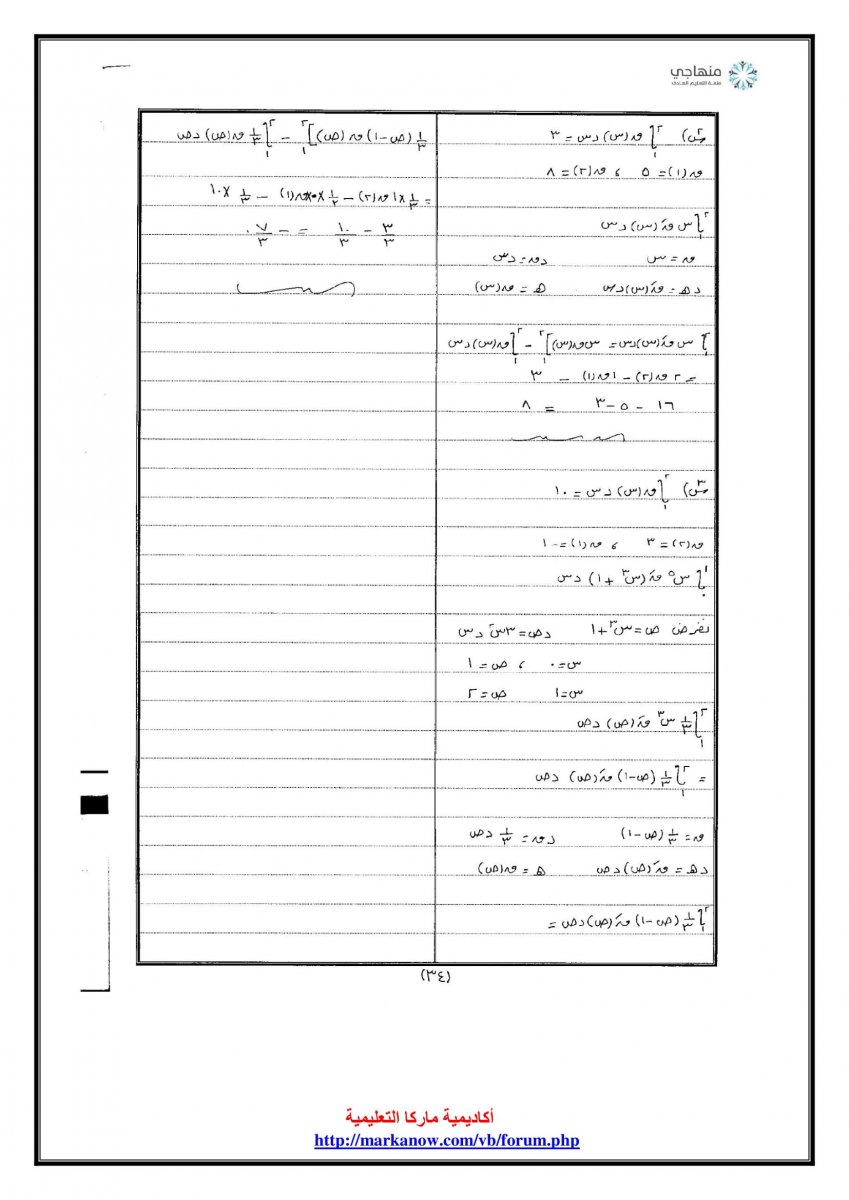 منهاجي
متعة التعليم الهادف
س٢) ∫₁² ق(س) دس = ٣
ق(١) = ٥ ، ق(٢) = ٨
∫₁² س قَ(س) دس
ق = س دق = دس
دهـ = قَ(س) دس هـ = ق(س)
∫₁² س قَ(س) دس = س ق(س)]₁² − ∫₁² ق(س) دس
= ٢ ق(٢) − ١ ق(١) − ٣
١٦ − ٥ − ٣ = ٨
س٣) ∫₁² ق(س) دس = ١٠
ق(٢) = ٣ ، ق(١) = −١
∫₀¹ س⁵ قَ(س³ + ١) دس
نفرض ص = س³ + ١ دص = ٣س² دس
س = ٠ ، ص = ١
س = ١ ص = ٢
∫₁² ١/٣ س³ قَ(ص) دص
= ∫₁² ١/٣ (ص − ١) قَ(ص) دص
ق = ١/٣ (ص − ١) دق = ١/٣ دص
دهـ = قَ(ص) دص هـ = ق(ص)
∫₁² ١/٣ (ص − ١) قَ(ص) دص =
١/٣ (ص − ١) ق(ص)]₁² − ∫₁² ١/٣ ق(ص) دص
= ١/٣ × ١ ق(٢) − ١/٢ × ٠ × ق(١) − ١/٣ × ١٠
٣/٣ − ١٠/٣ = −٧/٣ ٠
(٣٤)
أكاديمية ماركا التعليمية
http://markanow.com/vb/forum.php